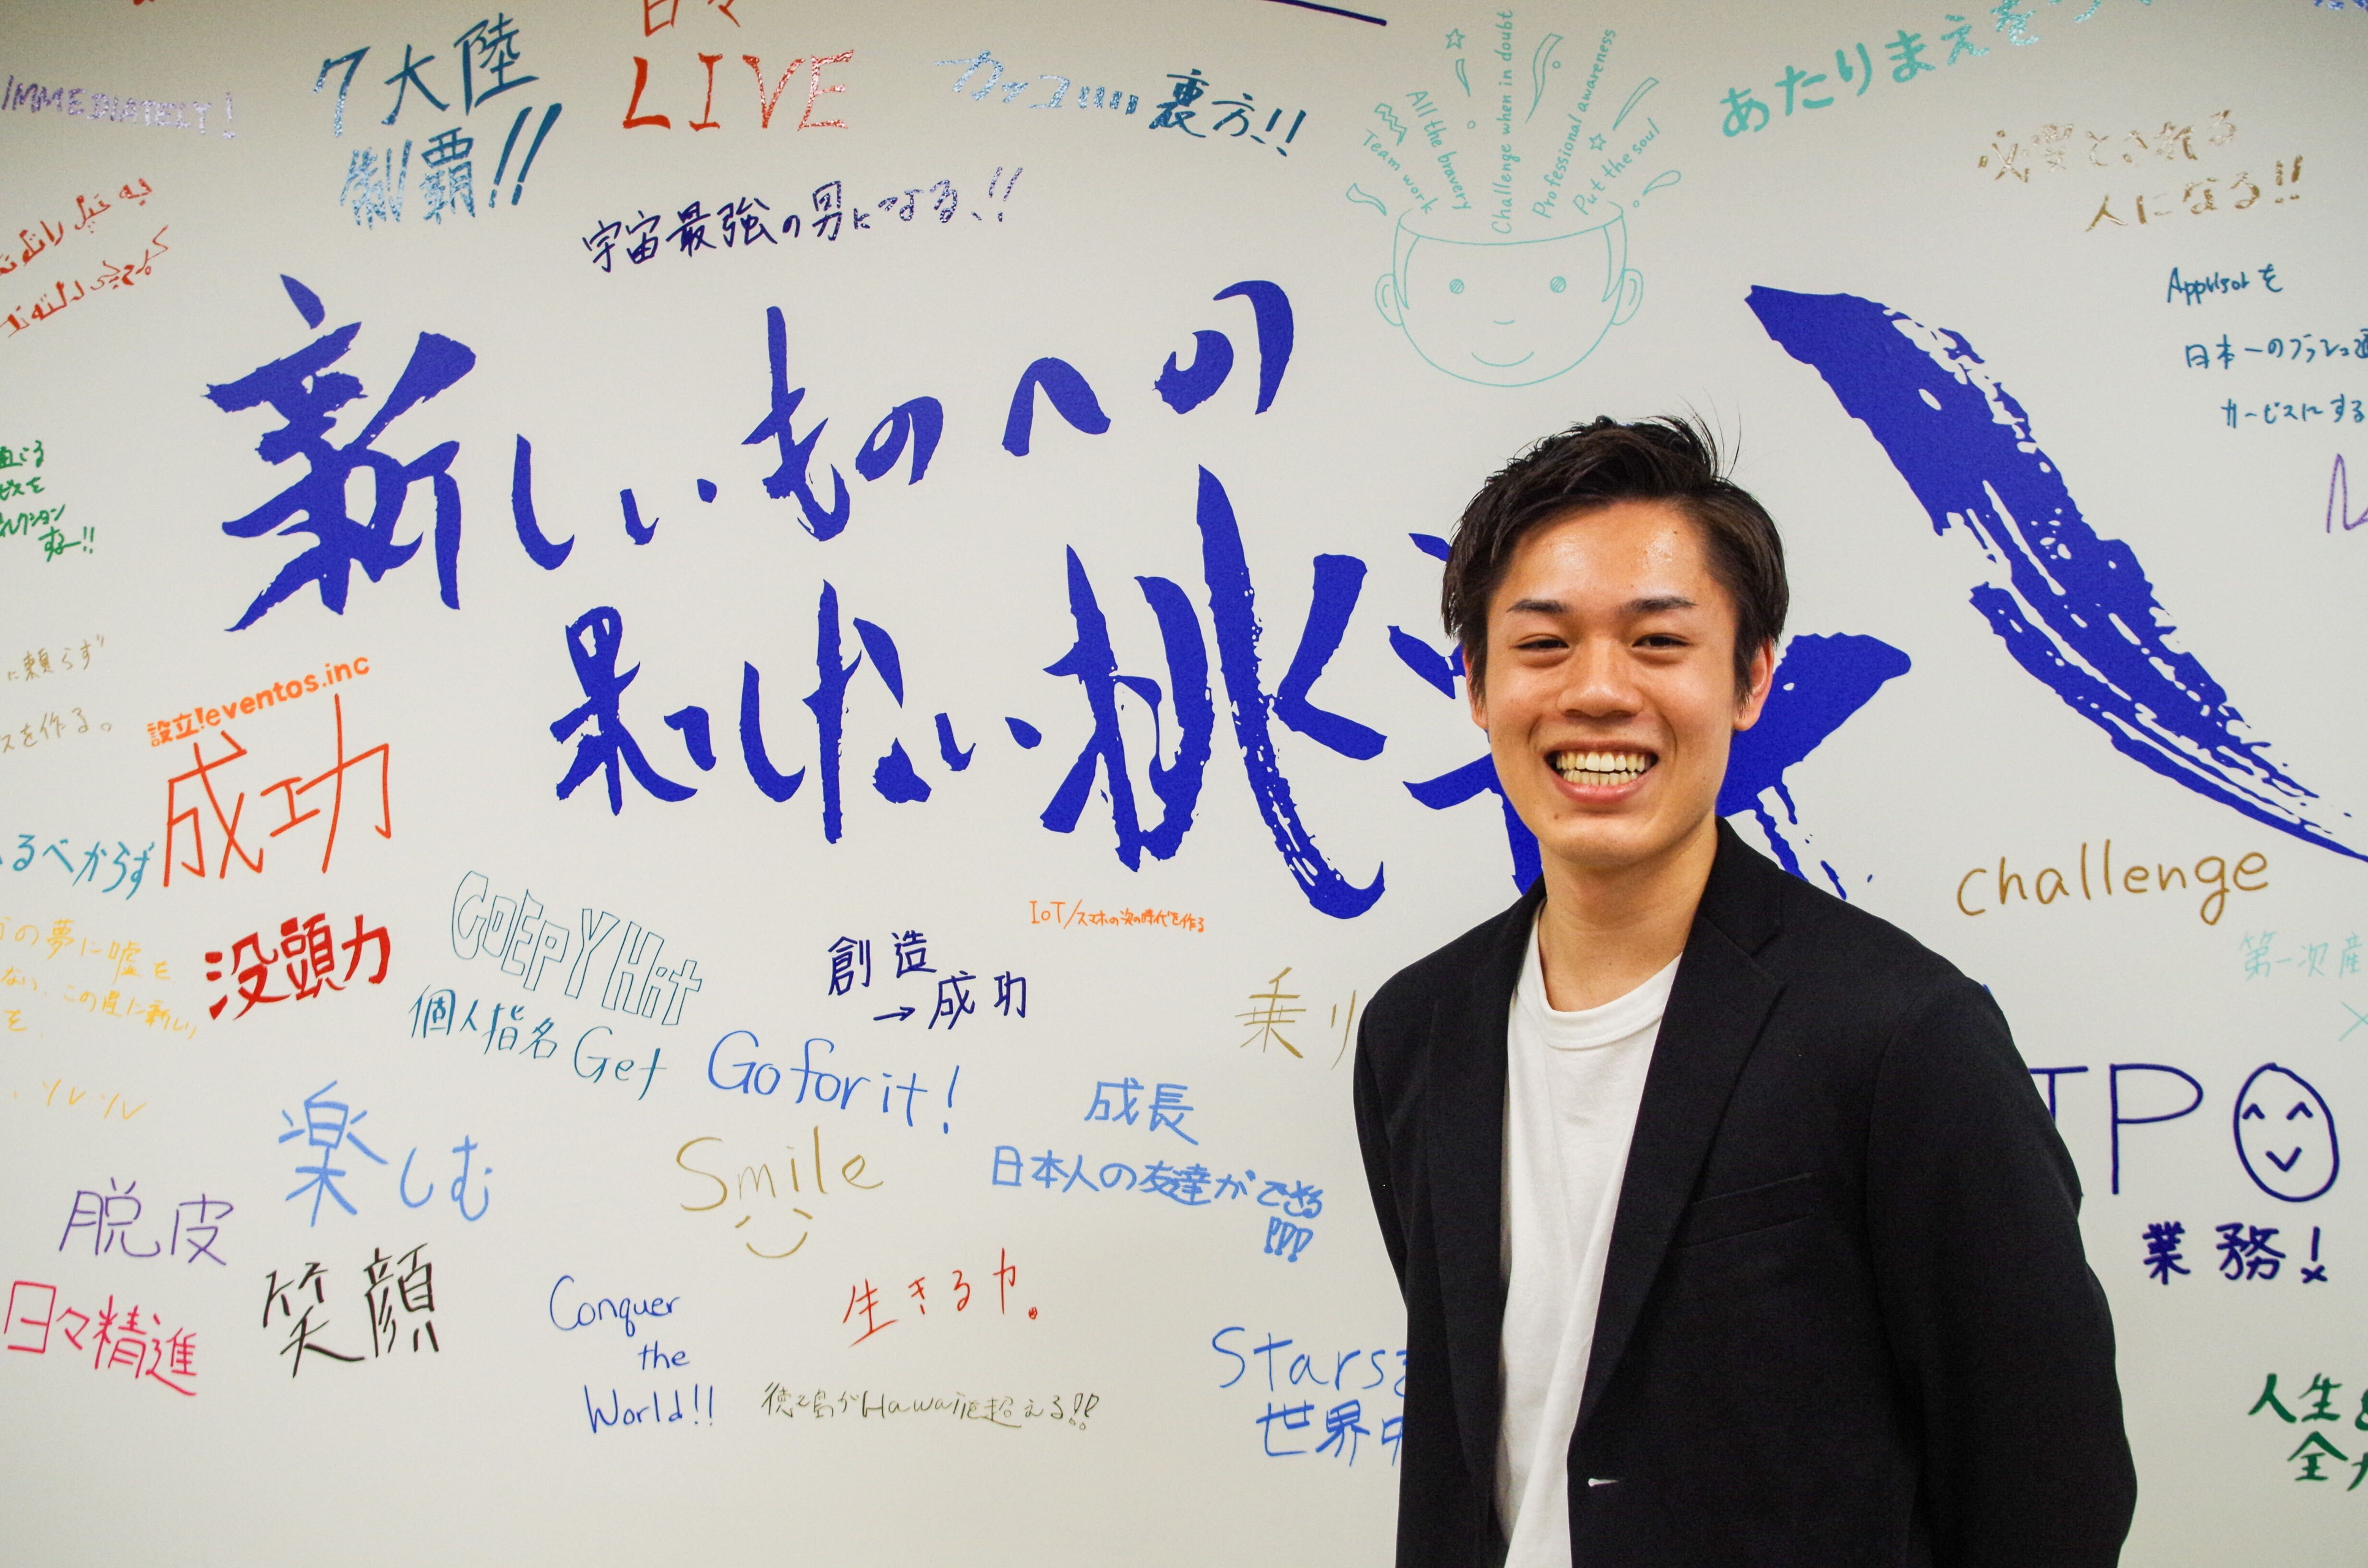 日々
LIVE
IMMEDIATELY!
7大陸
制覇!!
カッコいい裏方!!
Team work
All the bravery
Challenge when in doubt
Professional awareness
Put the soul
あたりまえを
必要とされる
人になる!!
宇宙最強の男になる!!
新しいものへの
果てしない挑
日本一の
サービスにする
に頼らず
スを作る。
設立!eventos.inc
成功
るべからず
没頭力
の夢に嘘を
ない、この星に新しい
を
GOEPY Hit
個人指名 Get
IoT/スマホの次の時代を作る
創造
→成功
乗り
challenge
第一次産
Go for it!
成長
日本人の友達ができる
楽しむ
Smile
ソレソレ
脱皮
笑顔
日々精進
Conquer
the
World!!
生きる力。
徳之島がHawaiiを超える!!
Stars
世界中
IPO
業務!
人生
全力